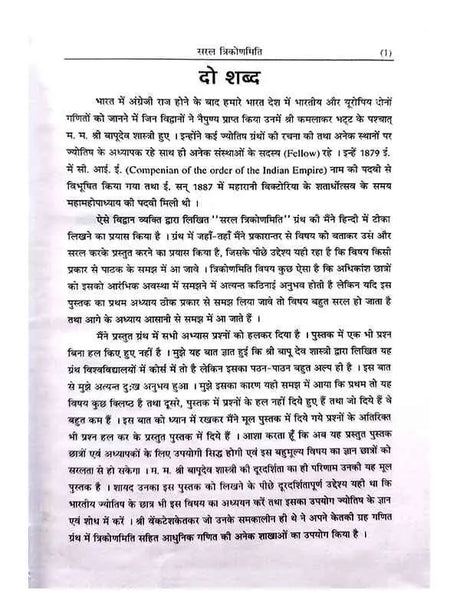 सरल त्रिकोणमिति (1)
दो शब्द
भारत में अंग्रेजी राज होने के बाद हमारे भारत देश में भारतीय और यूरोपिय दोनों
गणितों को जानने में जिन विद्वानों ने नैपुण्य प्राप्त किया उनमें श्री कमलाकर भट्ट के पश्चात्
म. म. श्री बापूदेव शास्त्री हुए । इन्होंने कई ज्योतिष ग्रंथों की रचना की तथा अनेक स्थानों पर
ज्योतिष के अध्यापक रहे साथ ही अनेक संस्थाओं के सदस्य (Fellow) रहे । इन्हें 1879 ई.
में सी. आई. ई. (Compenian of the order of the Indian Empire) नाम की पदवी से
विभूषित किया गया तथा ई. सन् 1887 में महारानी विक्टोरिया के शतार्धोत्सव के समय
महामहोपाध्याय की पदवी मिली थी ।
ऐसे विद्वान व्यक्ति द्वारा लिखित "सरल त्रिकोणमिति" ग्रंथ की मैंने हिन्दी में टीका
लिखने का प्रयास किया है । ग्रंथ में जहाँ-तहाँ मैंने प्रकारान्तर से विषय को बताकर उसे और
सरल करके प्रस्तुत करने का प्रयास किया है, जिसके पीछे उद्देश्य यही रहा है कि विषय किसी
प्रकार से पाठक के समझ में आ जावे । त्रिकोणमिति विषय कुछ ऐसा है कि अधिकांश छात्रों
को इसको आरंभिक अवस्था में समझने में अत्यन्त कठिनाई अनुभव होती है लेकिन यदि इस
पुस्तक का प्रथम अध्याय ठीक प्रकार से समझ लिया जावे तो विषय बहुत सरल हो जाता है
तथा आगे के अध्याय आसानी से समझ में आ जाते हैं ।
मैंने प्रस्तुत ग्रंथ में सभी अभ्यास प्रश्नों को हलकर दिया है । पुस्तक में एक भी प्रश्न
बिना हल किए हुए नहीं है । मुझे यह बात ज्ञात हुई कि श्री बापू देव शास्त्री द्वारा लिखित यह
ग्रंथ विश्वविद्यालयों में कोर्स में तो है लेकिन इसका पठन-पाठन बहुत अल्प ही है । इस बात
से मुझे अत्यन्त दुःख अनुभव हुआ । मुझे इसका कारण यही समझ में आया कि प्रथम तो यह
विषय कुछ क्लिष्ठ है तथा दूसरे, पुस्तक में प्रश्नों के हल नहीं दिये हुए हैं तथा जो दिये हैं वे
बहुत कम हैं । इस बात को ध्यान में रखकर मैंने मूल पुस्तक में दिये गये प्रश्नों के अतिरिक्त
भी प्रश्न हल कर के प्रस्तुत पुस्तक में दिये हैं । आशा करता हूँ कि अब यह प्रस्तुत पुस्तक
छात्रों एवं अध्यापकों के लिए उपयोगी सिद्ध होगी एवं इस बहुमूल्य विषय का ज्ञान छात्रों को
सरलता से हो सकेगा । म. म. श्री बापूदेव शास्त्री की दूरदर्शिता का ही परिणाम उनकी यह मूल
पुस्तक है । शायद उनका इस पुस्तक को लिखने के पीछे दूरदर्शितापूर्ण उद्देश्य यही था कि
भारतीय ज्योतिष के छात्र भी इस विषय का अध्ययन करें तथा इसका उपयोग ज्योतिष के ज्ञान
एवं शोध में करें । श्री वेंकटेशकेतकर जो उनके समकालीन ही थे ने अपने केतकी ग्रह गणित
ग्रंथ में त्रिकोणमिति सहित आधुनिक गणित की अनेक शाखाओं का उपयोग किया है ।